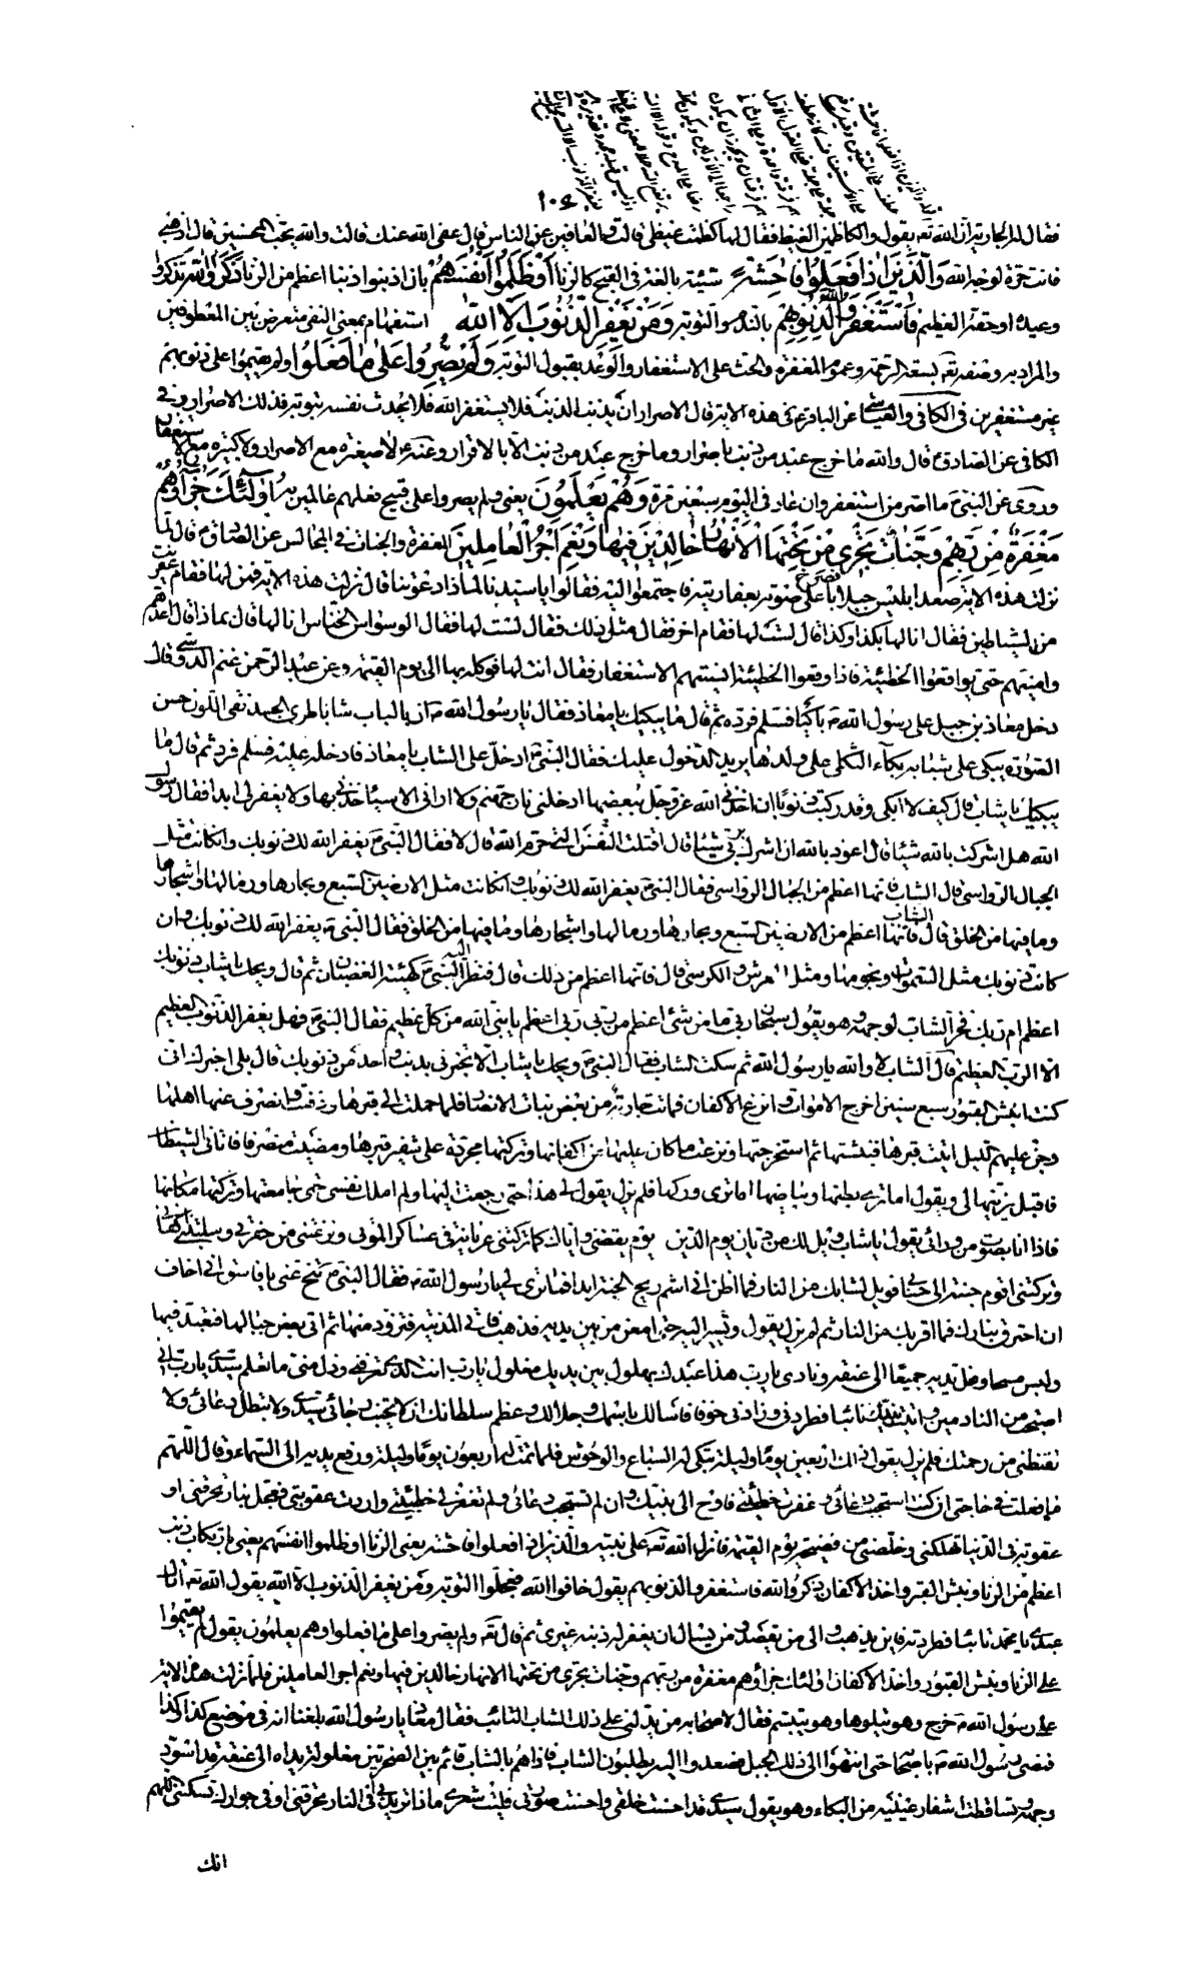 ١٠٤
فقال له الجارية ان الله تعه يقول والكاظمين الغيظ فقال لها كظمت غيظى قالت والعافين عن الناس قال عفى الله عنك قالت والله يحب المحسنين قال اذهبى
فانت حرة لوجه الله وَالَّذينَ اِذا فَعَلُوا فاحِشَةً سيئة بالغة فى القبح كالزنا اَوْ ظَلَمُوا اَنْفُسَهُمْ بان اذنبوا ذنبا اعظم من الزنا ذَكَرُوا اللهَ تذكروا
وعيده او حقه العظيم فَاسْتَغْفَرُوا لِذُنُوبِهِمْ بالندم والتوبة وَمَنْ يَغْفِرُ الذُّنُوبَ اِلَّا اللهُ استفهام بمعنى النفى معترض بين المعطوفين
والمراد به وصفه تعه بسعة الرحمة وعموم المغفرة والحث على الاستغفار والوعد بقبول التوبة وَلَمْ يُصِرُّوا عَلى ما فَعَلُوا ولم يقيموا على ذنوبهم
غير مستغفرين فى الكافى والعياشى عن الباقر ع فى هذه الاية قال الاصرار ان يذنب الذنب فلا يستغفر الله فلا يحدث نفسه بتوبة فذلك الاصرار وفى
الكافى عن الصادق ع قال والله ما خرج عبد من ذنب باصرار وما خرج عبد من ذنب الا بالاقرار وعنه ع لا صغيرة مع الاصرار ولا كبيرة مع الاستغفار
وروى عن النبى ص ما اصر من استغفر وان عاد فى اليوم سبعين مرة وَهُمْ يَعْلَمُونَ يعنى ولم يصروا على قبيح فعلهم عالمين به اُولئِكَ جَزاؤُهُمْ
مَغْفِرَةٌ مِنْ رَبِّهِمْ وَجَنّاتٌ تَجْرى مِنْ تَحْتِهَا الْاَنْهارُ خالِدينَ فيها وَنِعْمَ اَجْرُ الْعامِلينَ المغفرة والجنات فى المجالس عن الصادق ع قال لما
نزلت هذه الاية صعد ابليس جبلا فصرخ باعلى صوته بعفاريته فاجتمعوا اليه فقالوا يا سيدنا لماذا دعوتنا قال نزلت هذه الاية فمن لها فقام عفريت
من الشياطين فقال انا لها بكذا وكذا قال لست لها فقام اخر فقال مثل ذلك فقال لست لها فقال الوسواس الخناس انا لها قال بماذا قال اعدهم
وامنيهم حتى يواقعوا الخطيئة فاذا وقعوا الخطيئة انسيتهم الاستغفار فقال انت لها فوكله بها الى يوم القيمة وعن عبد الرحمن غنم الدوسى قال
دخل معاذ بن جبل على رسول الله ص باكيا فسلم فرده ثم قال ما يبكيك يا معاذ فقال يا رسول الله ص ان بالباب شابا طرى الجسد نقى اللون حسن
الصورة يبكى على شبابه بكاء الثكلى على ولدها يريد الدخول عليك فقال النبى ص ادخل على الشاب يا معاذ فادخله عليه فسلم فرد ثم قال ما
يبكيك يا شاب قال كيف لا ابكى وقد ركبت ذنوبا ان اخذنى الله عز وجل ببعضها ادخلنى نار جهنم ولا ارانى الا سيأخذنى بها ولا يغفر لى ابدا فقال رسول
الله هل اشركت بالله شيئا قال اعوذ بالله ان اشرك بربى شيئا قال اقتلت النفس التى حرم الله قال لا فقال النبى ص يغفر الله لك ذنوبك وان كانت مثل
الجبال الرواسى قال الشاب فانها اعظم من الجبال الرواسى فقال النبى ص يغفر الله لك ذنوبك وان كانت مثل الارضين السبع وبحارها ورمالها واشجارها
وما فيها من الخلق قال الشاب فانها اعظم من الارضين السبع وبحارها ورمالها واشجارها وما فيها من الخلق فقال النبى ص يغفر الله لك ذنوبك وان
كانت ذنوبك مثل السموات ونجومها ومثل العرش والكرسى قال فانها اعظم من ذلك قال فنظر اليه النبى ص كهيئة الغضبان ثم قال ويحك يا شاب ذنوبك
اعظم ام ربك فخر الشاب لوجهه وهو يقول سبحان ربى ما من شئ اعظم من ربى ربى اعظم يا نبى الله من كل عظيم فقال النبى ص فهل يغفر الذنوب العظيم
الا الرب العظيم قال الشاب لا والله يا رسول الله ثم سكت الشاب فقال النبى ص ويحك يا شاب الا تخبرنى بذنب واحد من ذنوبك قال بلى اخبرك انى
كنت انبش القبور سبع سنين اخرج الاموات وانزع الاكفان فماتت جارية من بعض بنات الانصار فلما حملت الى قبرها ودفنت وانصرف عنها اهلها
وجن عليهم الليل اتيت قبرها فنبشتها ثم استخرجتها ونزعت ما كان عليها من اكفانها وتركتها مجردة على شفير قبرها ومضيت منصرفا فاتانى الشيطان
فاقبل يزينها لى ويقول اما ترى بطنها وبياضها اما ترى وركها فلم يزل يقول لى هذا حتى رجعت اليها ولم املك نفسى حتى جامعتها وتركتها مكانها
فاذا انا بصوت من ورائى يقول يا شاب ويل لك من ديان يوم الدين يوم يقفنى واياك كما تركتنى عريانة فى عساكر الموتى ونزعتنى من حفرتى وسلبتنى اكفانى
وتركتنى اقوم جنبة الى حسابى فويل لشبابك من النار فما اظن انى اشم ريح الجنة ابدا فما ترى لى يا رسول الله ص فقال النبى ص تنح عنى يا فاسق انى اخاف
ان احترق بنارك فما اقربك من النار ثم لم يزل يقول ويشير اليه حتى امعن من بين يديه فذهب فاتى المدينة فتزود منها ثم اتى بعض جبالها فتعبد فيها
ولبس مسحا وغل يديه جميعا الى عنقه ونادى يا رب هذا عبدك بهلول بين يديك مغلول يا رب انت الذى تعرفنى وزل منى ما تعلم سيدى يا رب انى
اصبحت من النادمين واتيت نبيك تائبا فطردنى وزادنى خوفا فاسالك باسمك وجلالك وعظم سلطانك ان لا تخيب رجائى سيدى ولا تبطل دعائى ولا
تقنطنى من رحمتك فلم يزل يقول ذلك اربعين يوما وليلة تبكى له السباع والوحوش فلما تمت له اربعون يوما وليلة رفع يديه الى السماء وقال اللهم
ما فعلت فى حاجتى ان كنت استجبت دعائى وغفرت خطيئتى فاوح الى نبيك وان لم تستجب دعائى ولم تغفر لى خطيئتى واردت عقوبتى فعجل بنار تحرقنى او
عقوبة فى الدنيا تهلكنى وخلصنى من فضيحة يوم القيمة فانزل الله تعه على نبيه والذين اذا فعلوا فاحشة يعنى الزنا او ظلموا انفسهم يعنى بارتكاب ذنب
اعظم من الزنا ونبش القبر واخذ الاكفان ذكروا الله فاستغفروا لذنوبهم يقول خافوا الله فعجلوا التوبة ومن يغفر الذنوب الا الله يقول الله تعه اتاك
عبدى يا محمد تائبا فطردته فاين يذهب والى من يقصد ومن يسال ان يغفر له ذنبه غيرى ثم قال تعه ولم يصروا على ما فعلوا وهم يعلمون يقول لم يقيموا
على الزنا ونبش القبور واخذ الاكفان اولئك جزاؤهم مغفرة من ربهم وجنات تجرى من تحتها الانهار خالدين فيها ونعم اجر العاملين فلما نزلت هذه الاية
على رسول الله ص خرج وهو يتلوها وهو يتبسم فقال لاصحابه من يدلنى على ذلك الشاب التائب فقال معاذ يا رسول الله بلغنا انه فى موضع كذا وكذا
فمضى رسول الله ص باصحابه حتى انتهوا الى ذلك الجبل فصعدوا اليه يطلبون الشاب فاذا هم بالشاب قائم بين الصخرتين مغلولة يداه الى عنقه قد اسود
وجهه وتساقطت اشفار عينيه من البكاء وهو يقول سيدى قد احسنت خلقى واحسنت صورتى فليت شعرى ماذا تريد بى أفى النار تحرقنى او فى جوارك تسكننى اللهم
انك